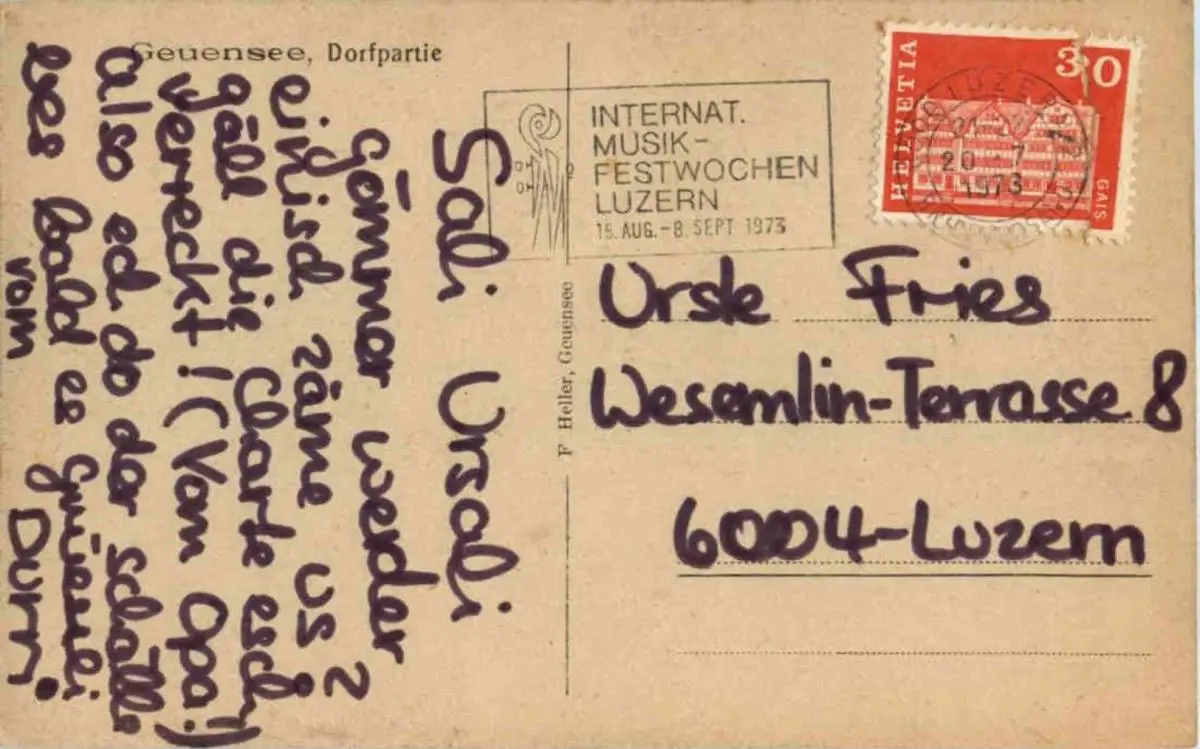 Geuensee, Dorfpartie
Sali Ursali
Gömmer weder
einisd zäme us?
gäll die Charte esch
verreckt! (Vom Opa!)
also ed do der schatte
bald es
vom Durri
INTERNAT.
MUSIK-
FESTWOCHEN
LUZERN
15. AUG.-8. SEPT 1973
HELVETIA
30
GAIS
LUZERN
20. 7
1973
F Heller, Geuensee
Ursle Fries
Wesemlin-Terrasse 8
6004-Luzern